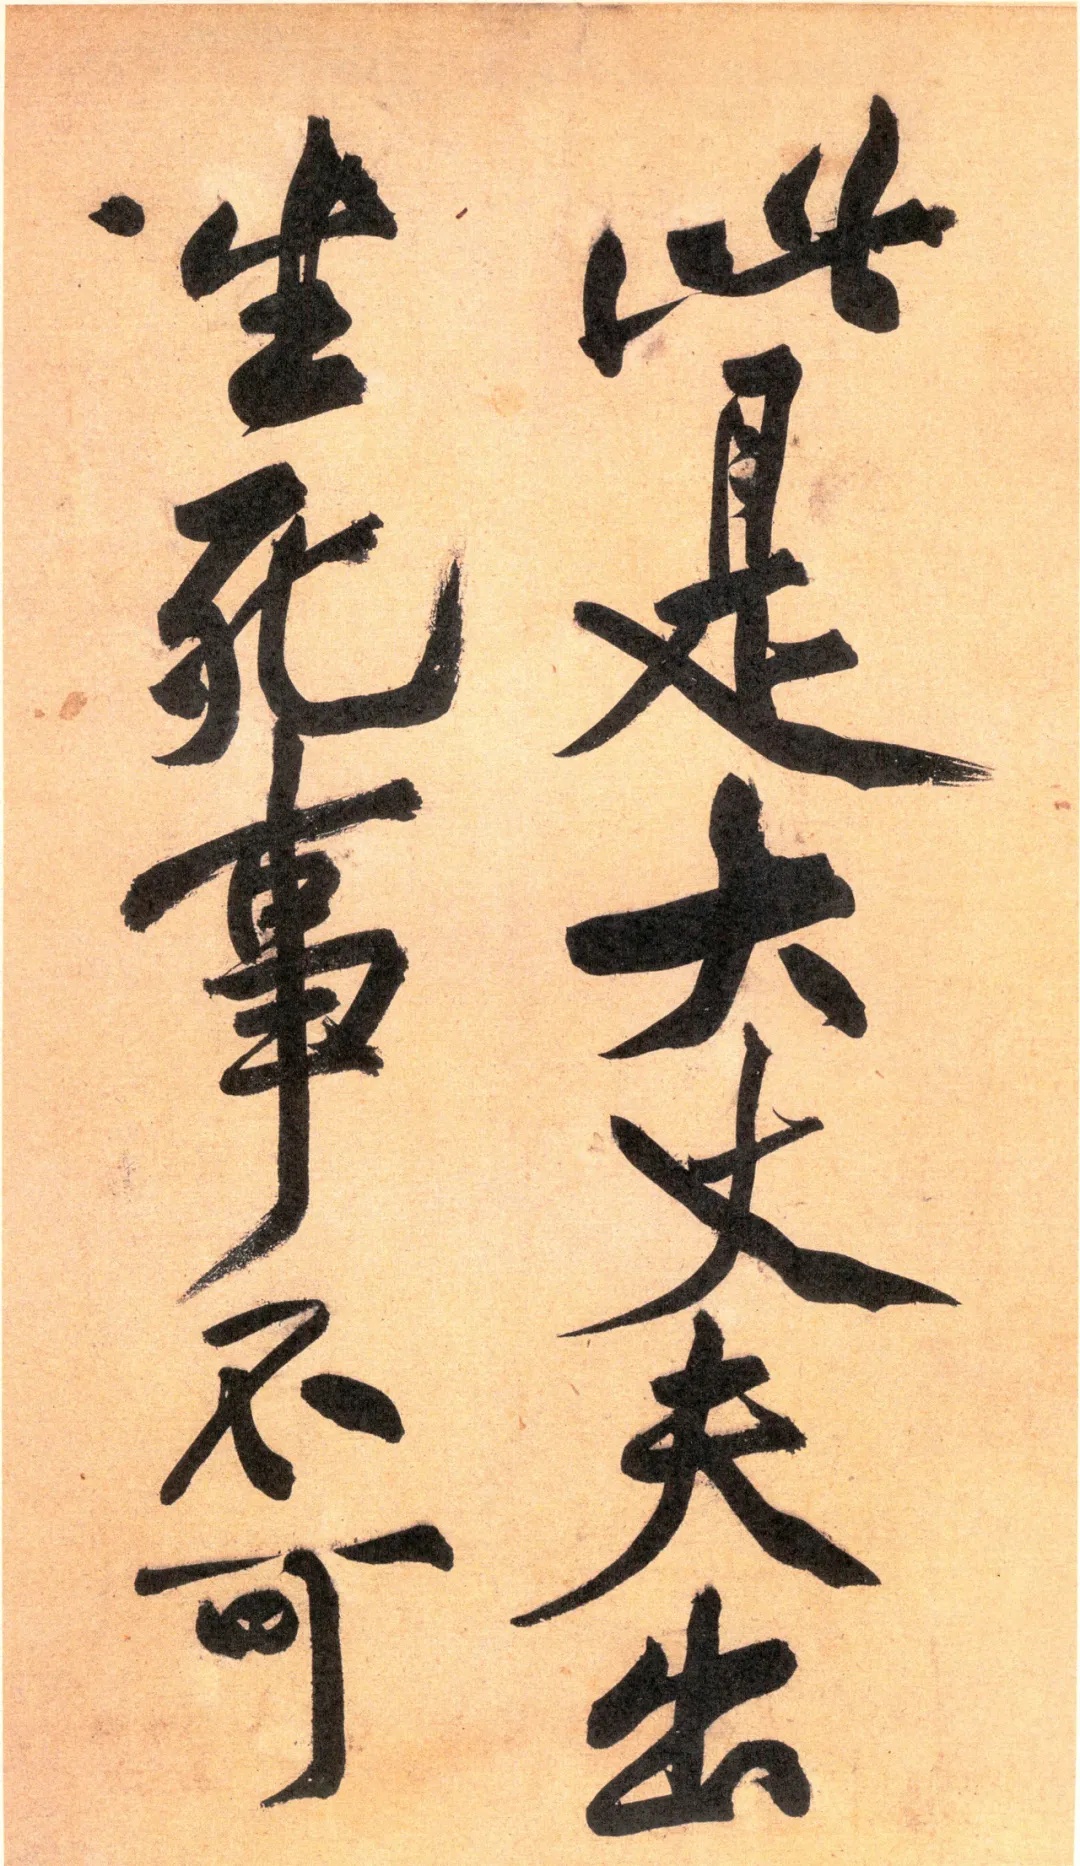 此是大丈夫出
生死事不可